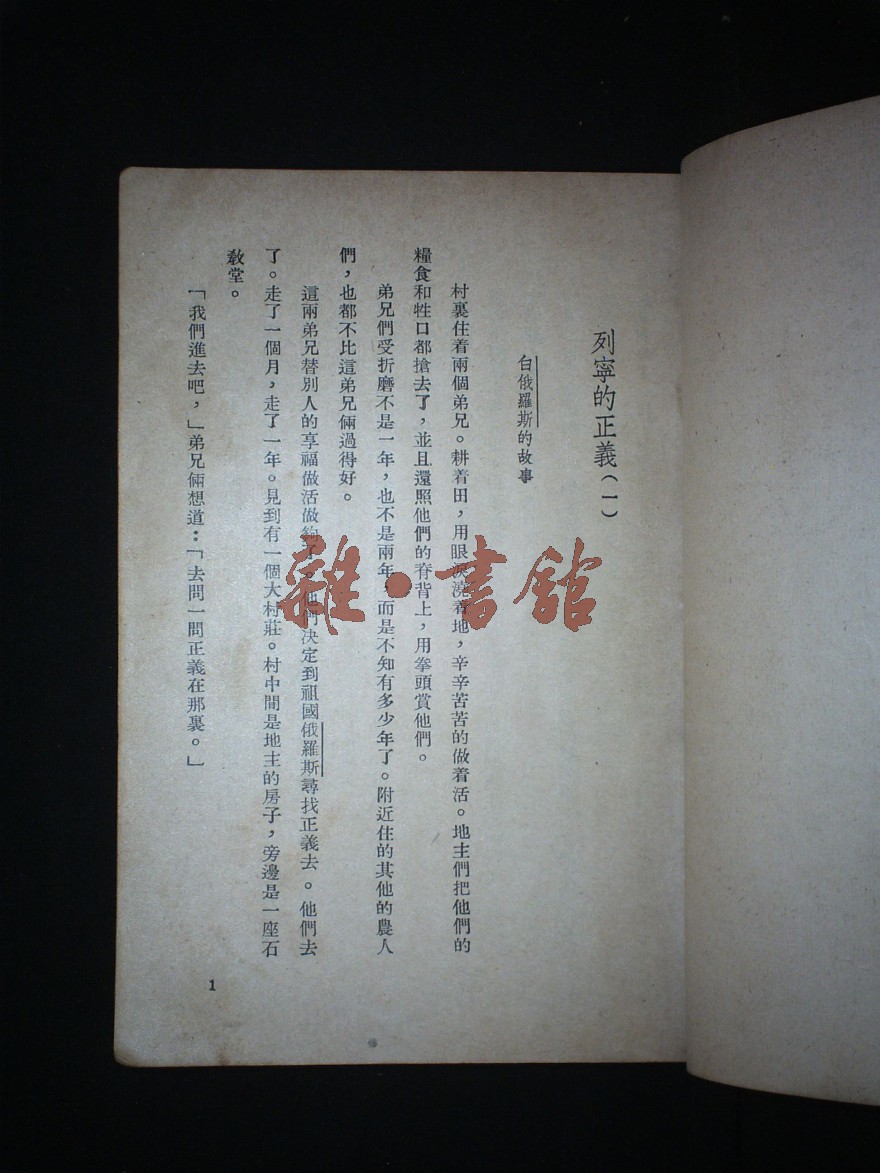 列寧的正義（一）
白俄羅斯的故事
村裏住着兩個弟兄。耕着田，用眼淚澆着地，辛辛苦苦的做着活。地主們把他們的
糧食和牲口都搶去了，並且還照他們的脊背上，用拳頭賞他們。
弟兄們受折磨不是一年，也不是兩年，而是不知有多少年了。附近住的其他的農人
們，也都不比這弟兄倆過得好。
這兩弟兄替別人的享福做活做夠了。他們決定到祖國俄羅斯尋找正義去。他們去
了。走了一個月，走了一年。見到有一個大村莊。村中間是地主的房子，旁邊是一座石
敎堂。
「我們進去吧，」弟兄倆想道：「去問一問正義在那裏。」
1
雜·書館